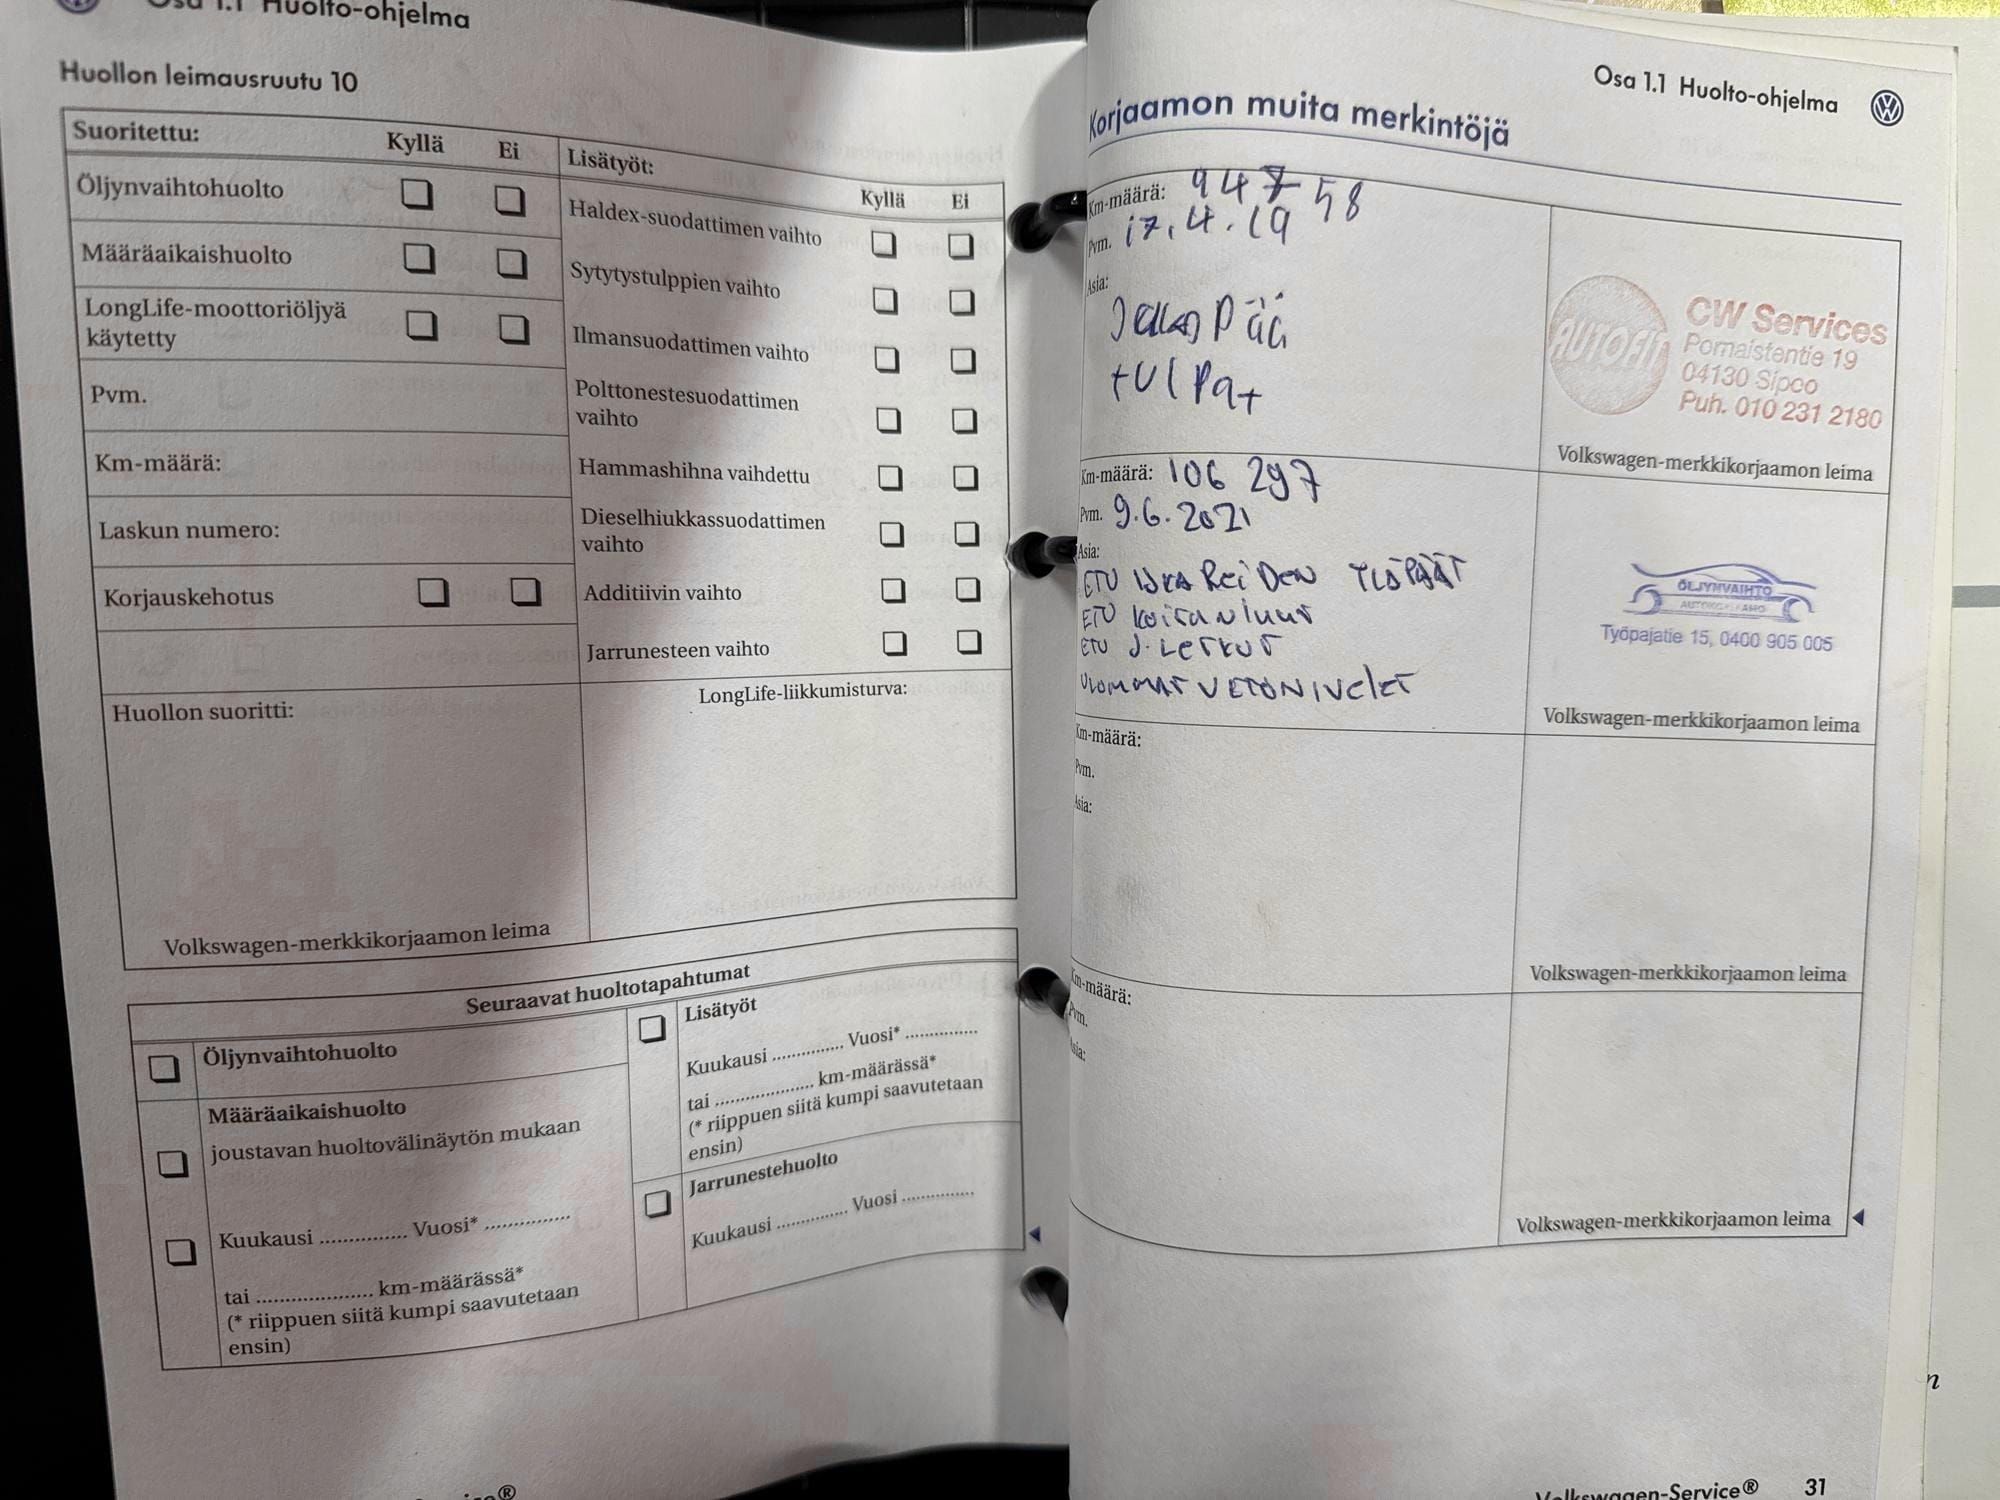 Osa 1.1 Huolto-ohjelma
Huollon leimausruutu 10
Suoritettu:
Kyllä
Ei
Öljynvaihtohuolto
Määräaikaishuolto
LongLife-moottoriöljyä
käytetty
Pvm.
Km-määrä:
Laskun numero:
Korjauskehotus
Lisätyöt:
Kyllä
Ei
Haldex-suodattimen vaihto
Sytytystulppien vaihto
Ilmansuodattimen vaihto
Polttonestesuodattimen
vaihto
Hammashihna vaihdettu
Dieselhiukkassuodattimen
vaihto
Additiivin vaihto
Jarrunesteen vaihto
Huollon suoritti:
LongLife-liikkumisturva:
Volkswagen-merkkikorjaamon leima
Seuraavat huoltotapahtumat
Öljynvaihtohuolto
Määräaikaishuolto
joustavan huoltovälinäytön mukaan
Kuukausi ............... Vuosi* ...............
tai .................... km-määrässä*
(* riippuen siitä kumpi saavutetaan
ensin)
Lisätyöt
Kuukausi ............... Vuosi* ...............
tai .................... km-määrässä*
(* riippuen siitä kumpi saavutetaan
ensin)
Jarrunestehuolto
Kuukausi ............... Vuosi ...............
Osa 1.1 Huolto-ohjelma
Korjaamon muita merkintöjä
Km-määrä: 94758
Pvm. 17.4.19
Asia:
Pää
tulpat
AUTOFIT
CW Services
Pornaistentie 19
04130 Sipoo
Puh. 010 231 2180
Volkswagen-merkkikorjaamon leima
Km-määrä: 106 297
Pvm. 9.6.2021
Asia:
ETU ISKAREIDEN YLÄPÄÄT
ETU koiranluut
ETU J. LETKUT
ULOMMAT VETONIVELET
ÖLJYNVAIHTO
Työpajatie 15, 0400 905 005
Volkswagen-merkkikorjaamon leima
Km-määrä:
Pvm.
Asia:
Volkswagen-merkkikorjaamon leima
Km-määrä:
Pvm.
Asia:
Volkswagen-merkkikorjaamon leima
Volkswagen-Service® 31